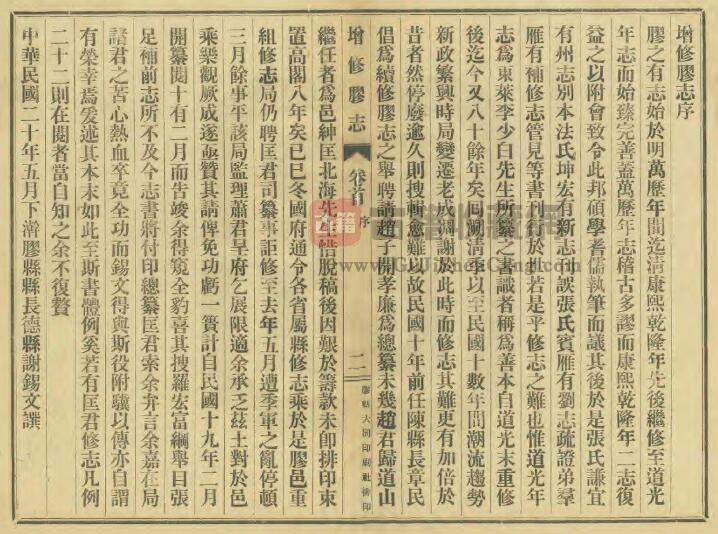 增修膠志序
膠之有志始於明萬歷年間迄清康熙乾隆年先後繼修至道光
年志而始臻完善蓋萬歷年志稽古多謬而康熙乾隆年二志復
益之以附會致令此邦碩學耆儒執筆而議其後於是張氏謙宜
有州志別本法氏坤宏有新志刊誤張氏賓雁有劉志疏證弟羣
雁有補修志管見等書刊行於世若是乎修志之難也惟道光年
志爲東萊李少白先生所纂之書識者稱爲善本自道光末重修
後迄今又八十餘年矣回溯清季以至民國十數年間潮流趨勢
新政繁興時局變遷老成凋謝於此時而修志其難更有加倍於
昔者然停廢逾久則搜輯愈難以故民國十年前任陳縣長章民
倡爲續修膠志之舉聘請趙子開孝廉爲總纂未幾趙君歸道山
增修膠志 卷首 序 二 膠縣大同印刷社排印
繼任者爲邑紳匡北海先生惜脫稿後因艱於籌款未卽排印束
置高閣八年矣已巳冬國府通令各省屬縣修志乘於是膠邑重
組修志局仍聘匡君司纂事詎修至去年五月遭季軍之亂停頓
三月餘事平該局監理蕭君呈府乞展限適余承乏茲土對於邑
乘樂觀厥成遂亟贊其請俾免功虧一簣計自民國十九年二月
開纂閱十有二月而告竣余得窺全豹喜其搜羅宏富綱舉目張
足補前志所不及今志書將付印總纂匡君索余弁言余嘉在局
諸君之苦心熱血卒竟全功而錫文得與斯役附驥以傳亦自謂
有榮幸焉爰述其本末如此至斯書體例奚若有匡君修志凡例
二十二則在閱者當自知之余不復贅
中華民國二十年五月下澣膠縣縣長德縣謝錫文譔